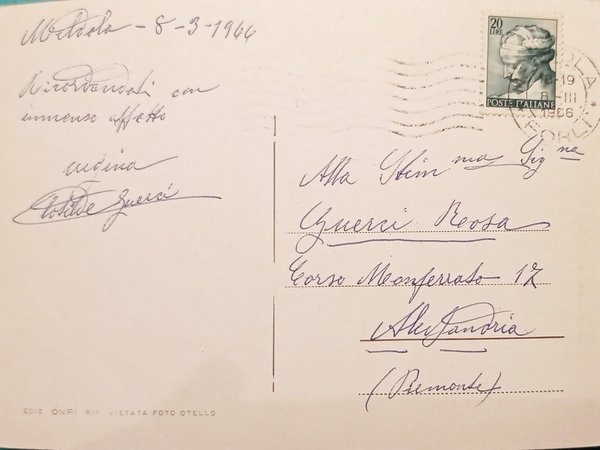 Meldola - 8-3-1966
Ricordandoti con
immenso affetto
cugina
Clotilde Guerci
20
LIRE
POSTE ITALIANE
19
8 III
1966
FORLI
Alla Stim ma Sig na
Guerci Rosa
Corso Monferrato 17
Alessandria
(Piemonte)
EDIZ. ONPI RIP. VIETATA FOTO OTELLO